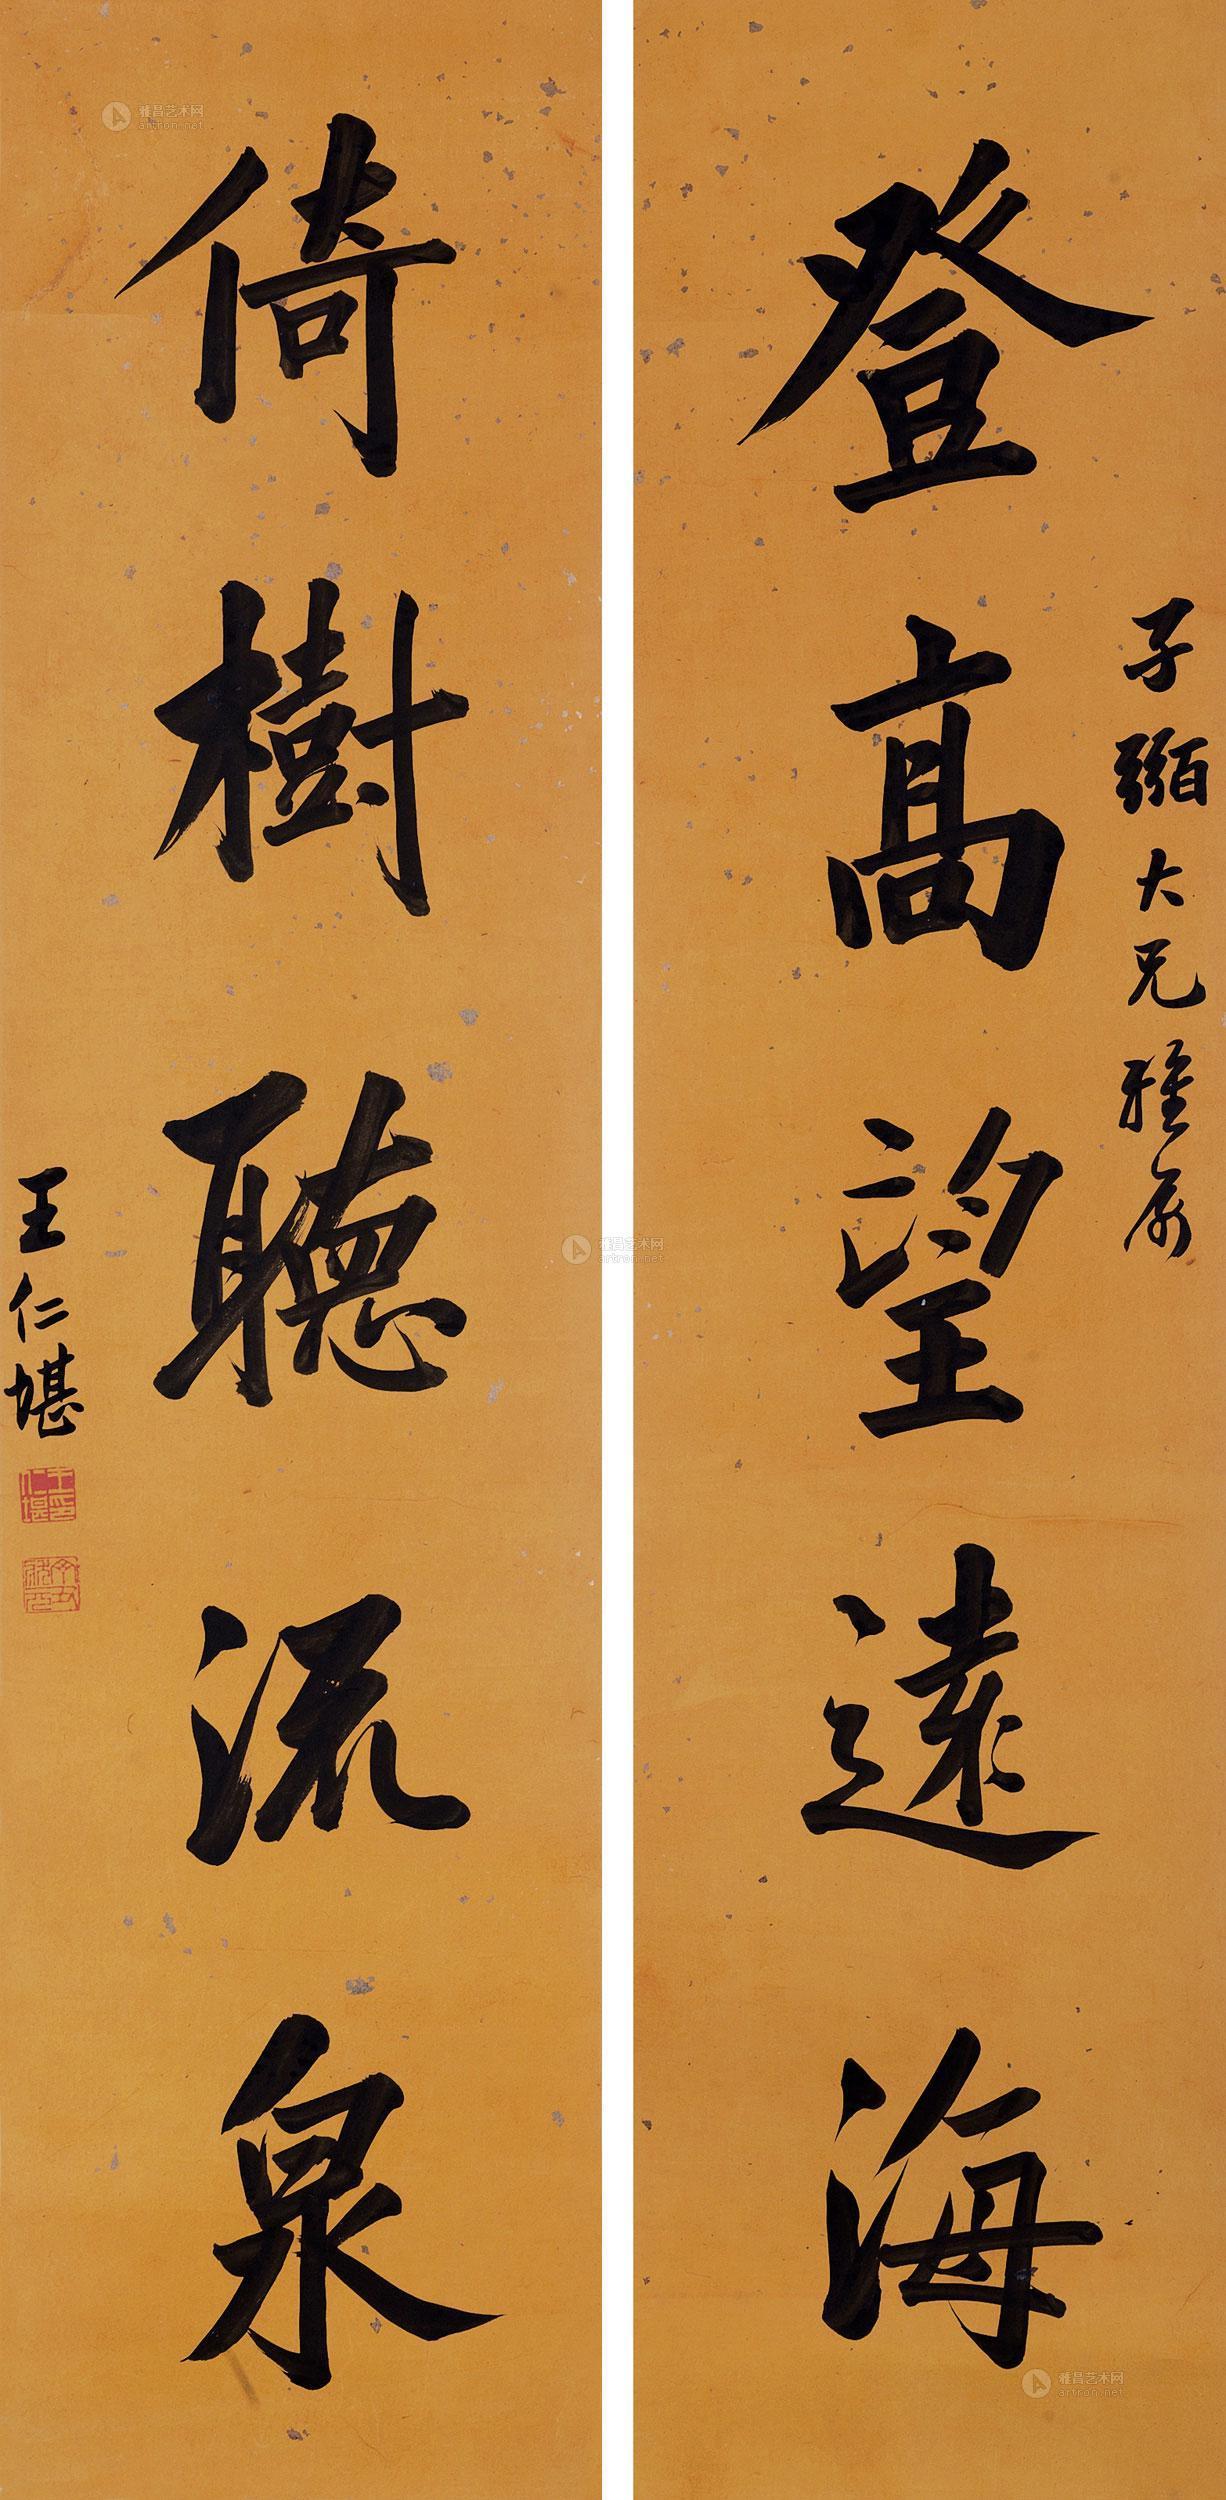 登高望遠海
子弻大兄雅屬
倚樹聽流泉
王仁堪
王仁堪印
雅昌艺术网
artron.net
雅昌艺术网
artron.net
雅昌艺术网
artron.net